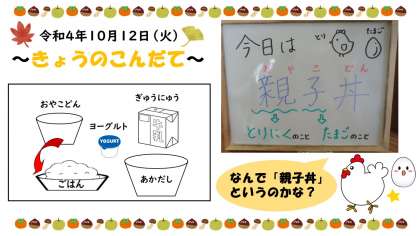 令和4年10月12日(火)
～きょうのこんだて～
おやこどん
ぎゅうにゅう
ヨーグルト
YOGURT
牛乳
ごはん
あかだし
今日は
とり
たまご
おやこどん
親子丼
とりにくのこと
たまごのこと
なんで「親子丼」
というのかな？